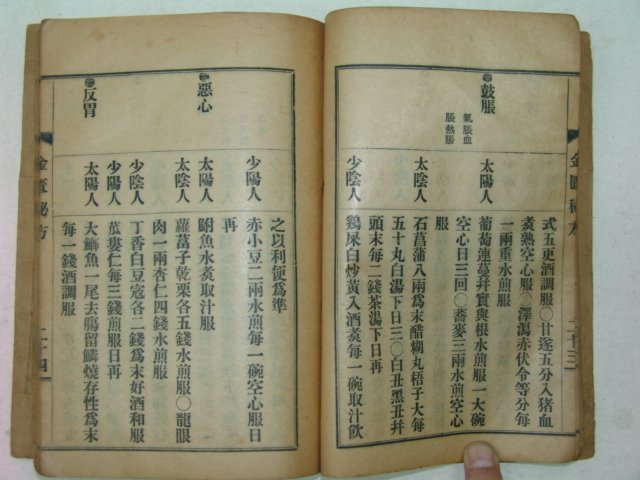 式五更酒調服〇甘遂五分入猪血
煮熟空心服〇澤瀉赤伏令等分每
一兩重水煎服
鼓脹
氣脹血
脹熱脹
太陽人
葡萄連蔓并實與根水煎服一大碗
空心日三回〇蕎麥三兩水煎空心
服
太陰人
石菖蒲八兩爲末醋糊丸梧子大每
五十丸白湯下日三〇白丑黑丑幷
頭末每二錢茶湯下日再
少陰人
鷄屎白炒黃入酒煮每一碗取汁飮
金匱秘方
二十三
之以利便爲準
少陽人
赤小豆二兩水煎每一碗空心服日
再
惡心
太陽人
鮒魚水煮取汁服
太陰人
蘿葍子乾栗各五錢水煎服〇龍眼
肉一兩杏仁四錢水煎服
少陰人
丁香白豆寇各二錢爲末好酒和服
少陽人
苽婁仁每三錢煎服日再
反胃
太陽人
大鯽魚一尾去膓留鱗燒存性爲末
每一錢酒調服
金匱秘方
二十四